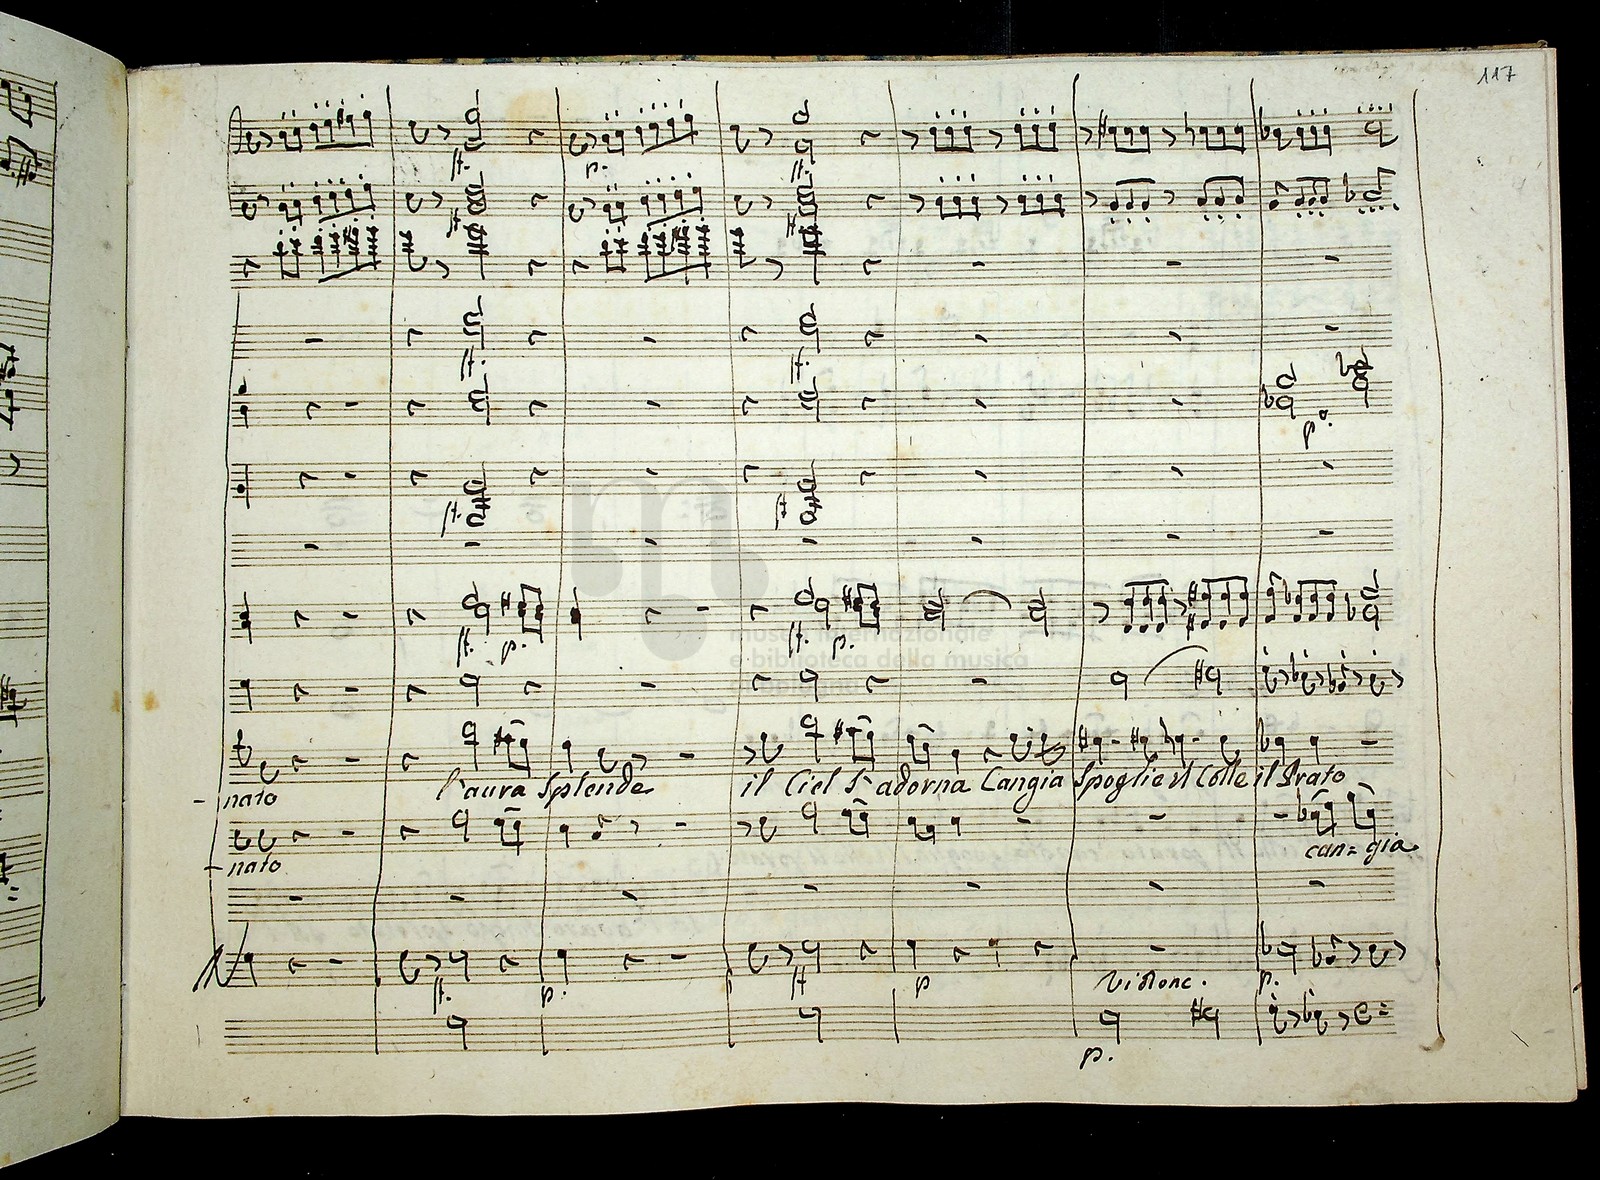 117
ff.
p.
ff.
ff.
ff.
ff.
ff.
p.º
ff.
ff.
ff. p. ff. p.
museo internazionale
e biblioteca della musica
-nato l'aura Splende il Ciel S'adorna Cangia Spoglie il Colle il Prato
-nato can=gia
ff. p. ff p Violonc. p.
p.